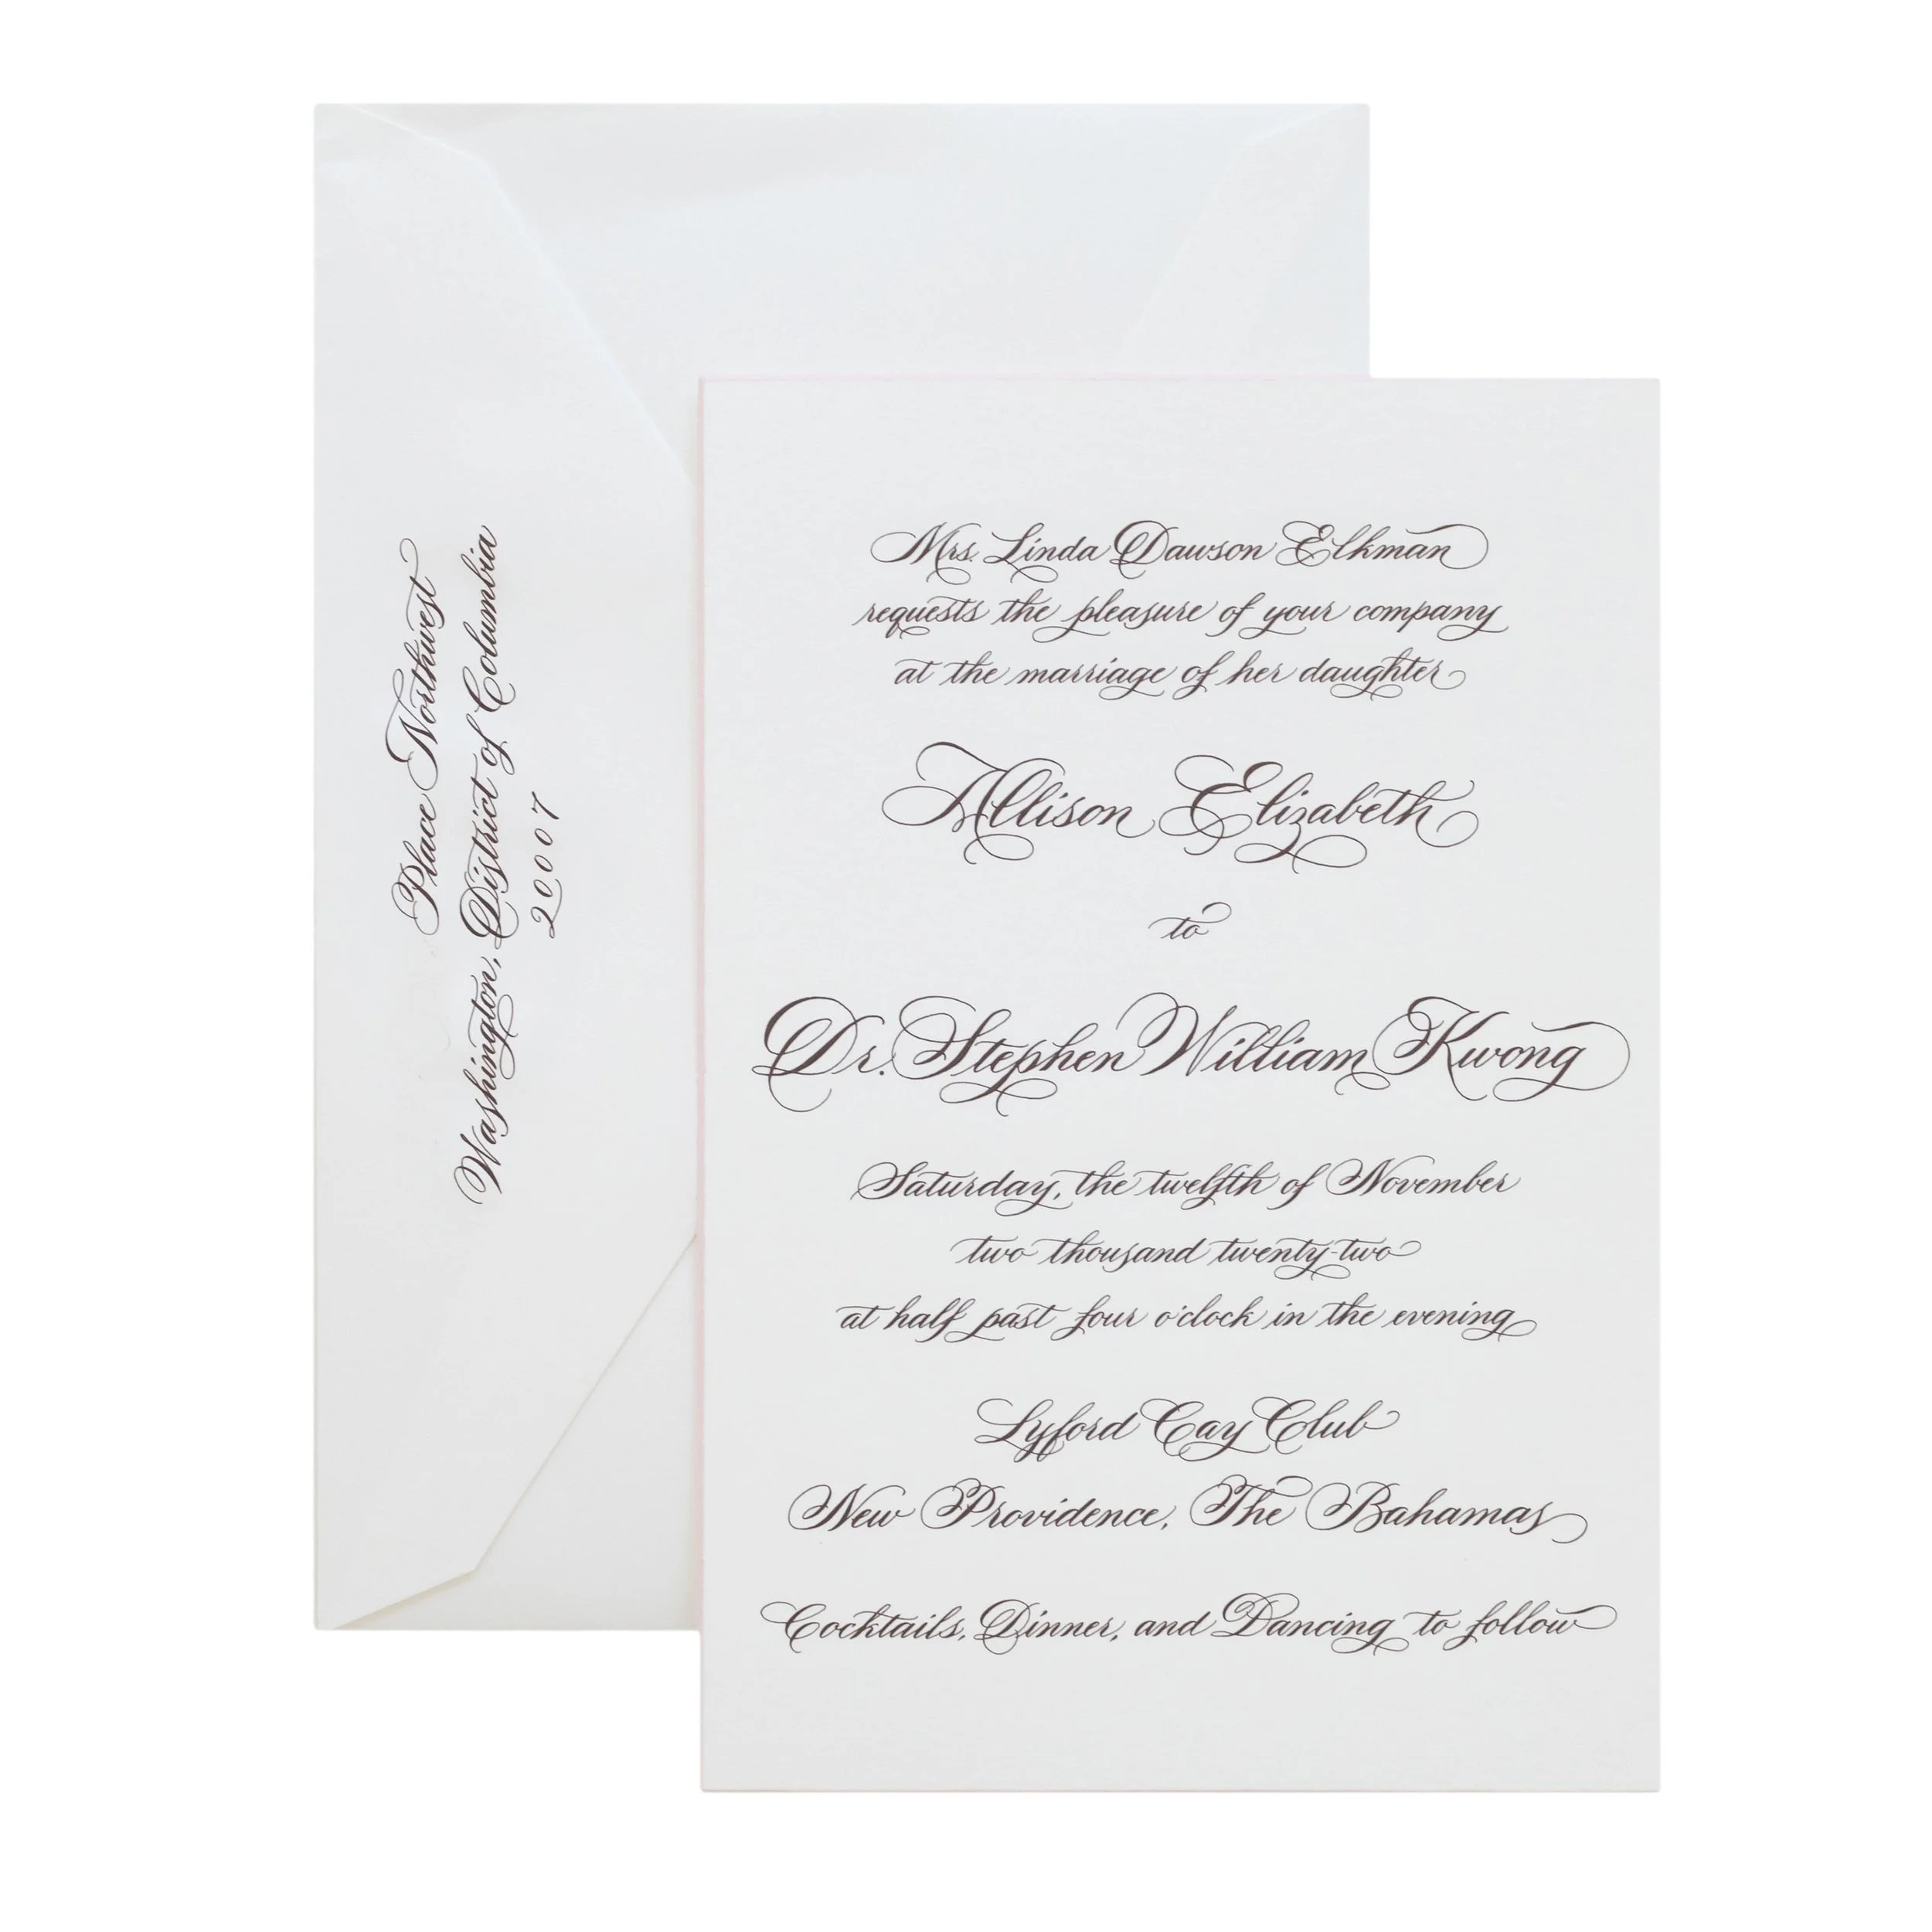 Place Northwest
Washington, District of Columbia
20007
Mrs. Linda Dawson Elkman
requests the pleasure of your company
at the marriage of her daughter
Allison Elizabeth
to
Dr. Stephen William Kwong
Saturday, the twelfth of November
two thousand twenty-two
at half past four o'clock in the evening
Lyford Cay Club
New Providence, The Bahamas
Cocktails, Dinner, and Dancing to follow